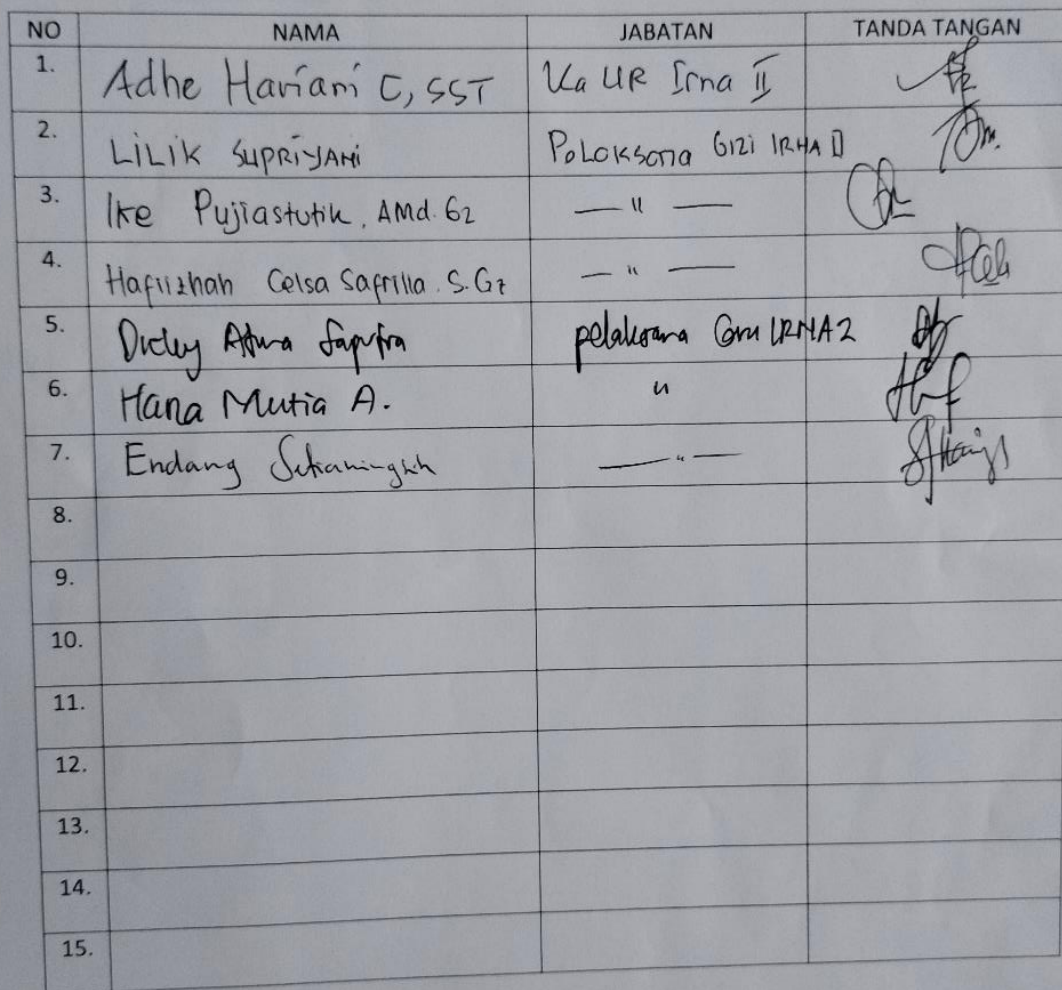 NO NAMA JABATAN TANDA TANGAN
1. Adhe Hariani C, SST Ka UR Irna II
2. LiLiK SUPRiYANi PeLaksana Gizi IRNA II
3. Ike Pujiastutik. AMd. Gz — " —
4. Hafiizhah Celsa Safrilla. S.Gz — " —
5. Saputra pelaksana IRNA 2
6. Hana Mutia A. "
7. Endang Setianingsih — " —
8.
9.
10.
11.
12.
13.
14.
15.